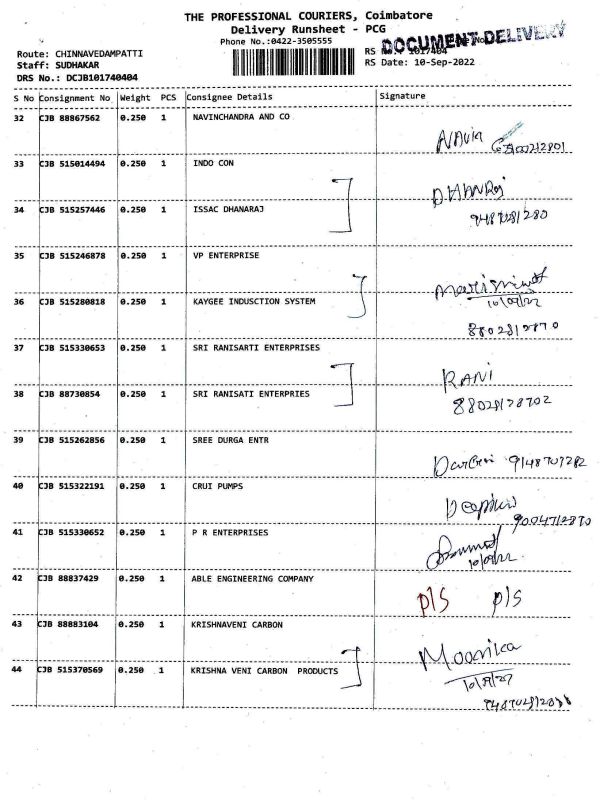 THE PROFESSIONAL COURIERS, Coimbatore
Delivery Runsheet - PCG
DOCUMENT DELIVERY
Phone No.:0422-3505555
Route: CHINNAVEDAMPATTI
Staff: SUDHAKAR
RS Date: 10-Sep-2022
DRS No.: DCJB101740404
S No Consignment No Weight PCS Consignee Details Signature
32 CJB 88867562 0.250 1 NAVINCHANDRA AND CO
Navin
33 CJB 515014494 0.250 1 INDO CON
DHANRaj
34 CJB 515257446 0.250 1 ISSAC DHANARAJ
35 CJB 515246878 0.250 1 VP ENTERPRISE
10/09/22
36 CJB 515280818 0.250 1 KAYGEE INDUSCTION SYSTEM
37 CJB 515330653 0.250 1 SRI RANISARTI ENTERPRISES
RANI
38 CJB 88730854 0.250 1 SRI RANISATI ENTERPRIES
39 CJB 515262856 0.250 1 SREE DURGA ENTR
40 CJB 515322191 0.250 1 CRUI PUMPS
41 CJB 515330652 0.250 1 P R ENTERPRISES
10/09/22
42 CJB 88837429 0.250 1 ABLE ENGINEERING COMPANY
P/S P/S
43 CJB 88883104 0.250 1 KRISHNAVENI CARBON
44 CJB 515370569 0.250 1 KRISHNA VENI CARBON PRODUCTS